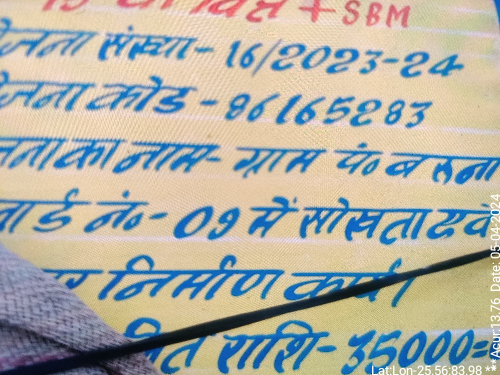 15 वां वित्त + SBM
योजना संख्या - 16/2023-24
योजना कोड - 86165283
योजना का नाम - ग्राम पं० बरुना
वार्ड नं० - 09 में सोखता एवं
निर्माण कार्य।
राशि - 35000=
Lat:Lon-25.56:83.98 **Acur:13.76 Date:05-04-2024